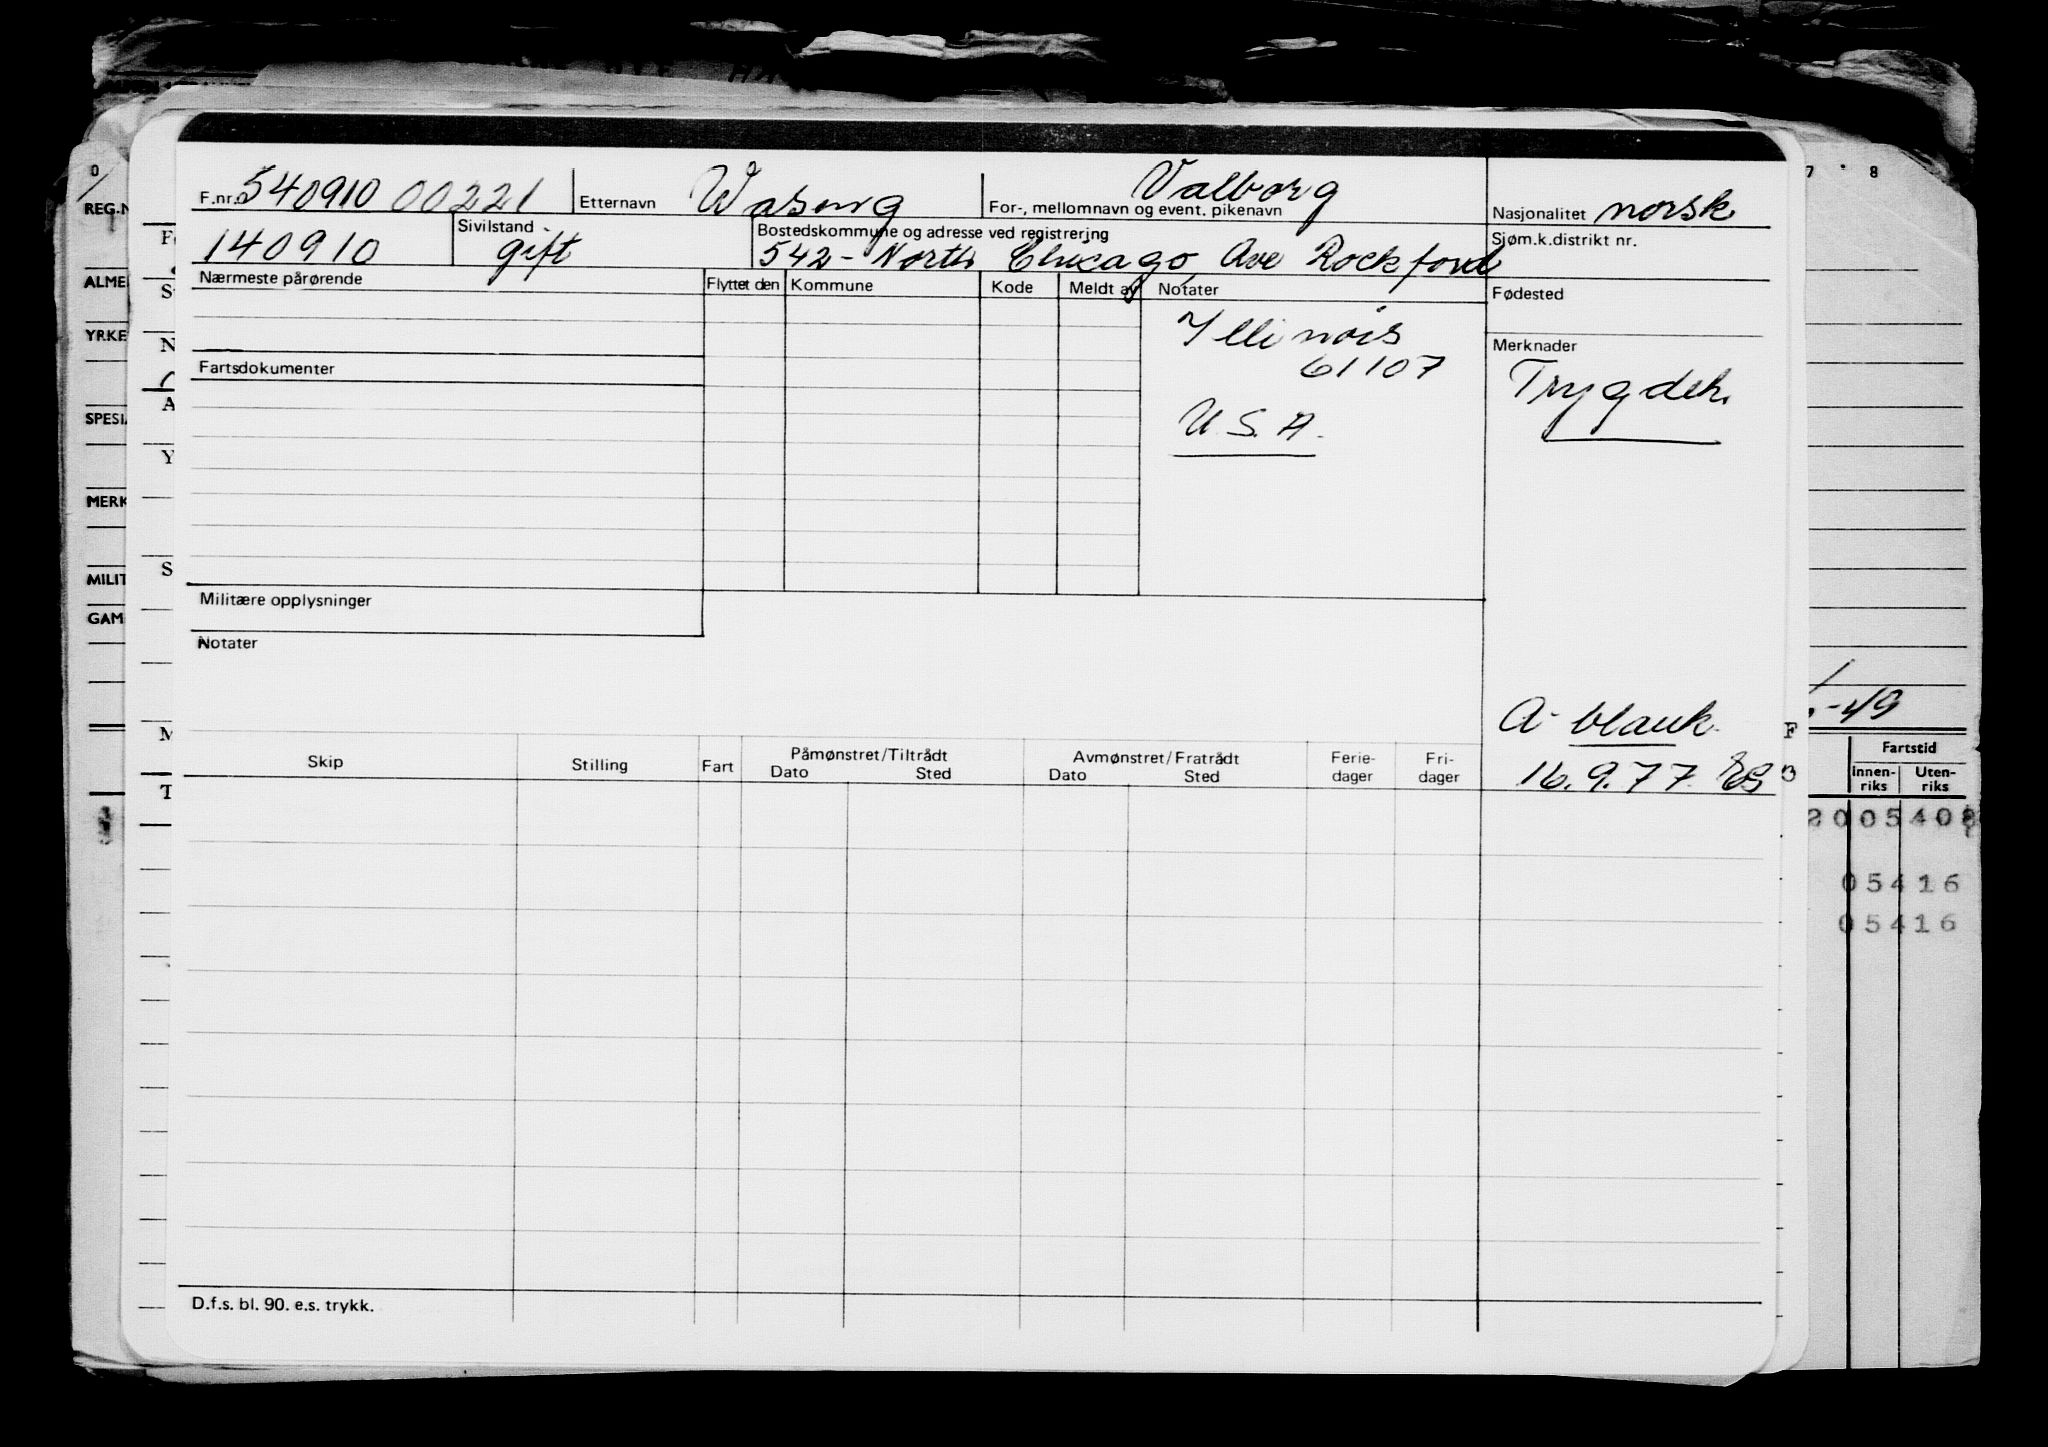 F.nr. 540910 00221 Etternavn Waberg For-, mellomnavn og event. pikenavn Valborg Nasjonalitet norsk
140910 Sivilstand gift Bostedskommune og adresse ved registrering 542 - North Chicago Ave Rockford Sjøm.k.distrikt nr.
Nærmeste pårørende Flyttet den Kommune Kode Meldt av Notater Fødested
Illinois
61107
U.S.A.
Merknader
Trygdek.
Fartsdokumenter
Militære opplysninger
Notater
A-blank
16.9.77
Skip Stilling Fart Påmønstret/Tiltrådt Dato Sted Avmønstret/Fratrådt Dato Sted Ferie-dager Fri-dager
D.f.s. bl. 90. e.s. trykk.
0
REG.N
ALME
YRKE
SPESI
MERK
MILIT
GAM
7 8
-49
Fartstid
Innen-riks Uten-riks
05416
05416